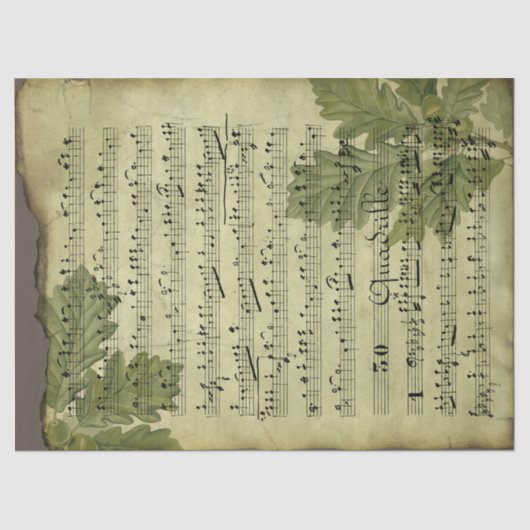 30 Quadrille
1